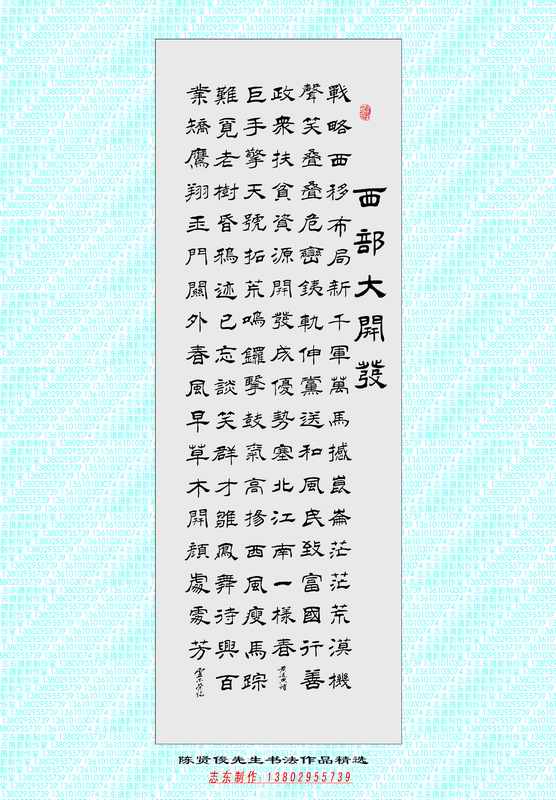 西部大開發
戰略西移布局新千軍萬馬撼崑崙茫茫荒漠機
聲笑叠叠危巒銕軌伸黨送和風民致富國行善
政衆扶貧資源開發成優勢塞北江南一樣春
巨手擎天號拓荒鳴鑼擊鼓氣高揚西風瘦馬踪
難覓老樹昏鴉迹已忘談笑群才雛鳳舞待興百
業矯鷹翔玉門關外春風早草木開顔處處芳
陈贤俊先生书法作品精选
志东制作: 13802955739